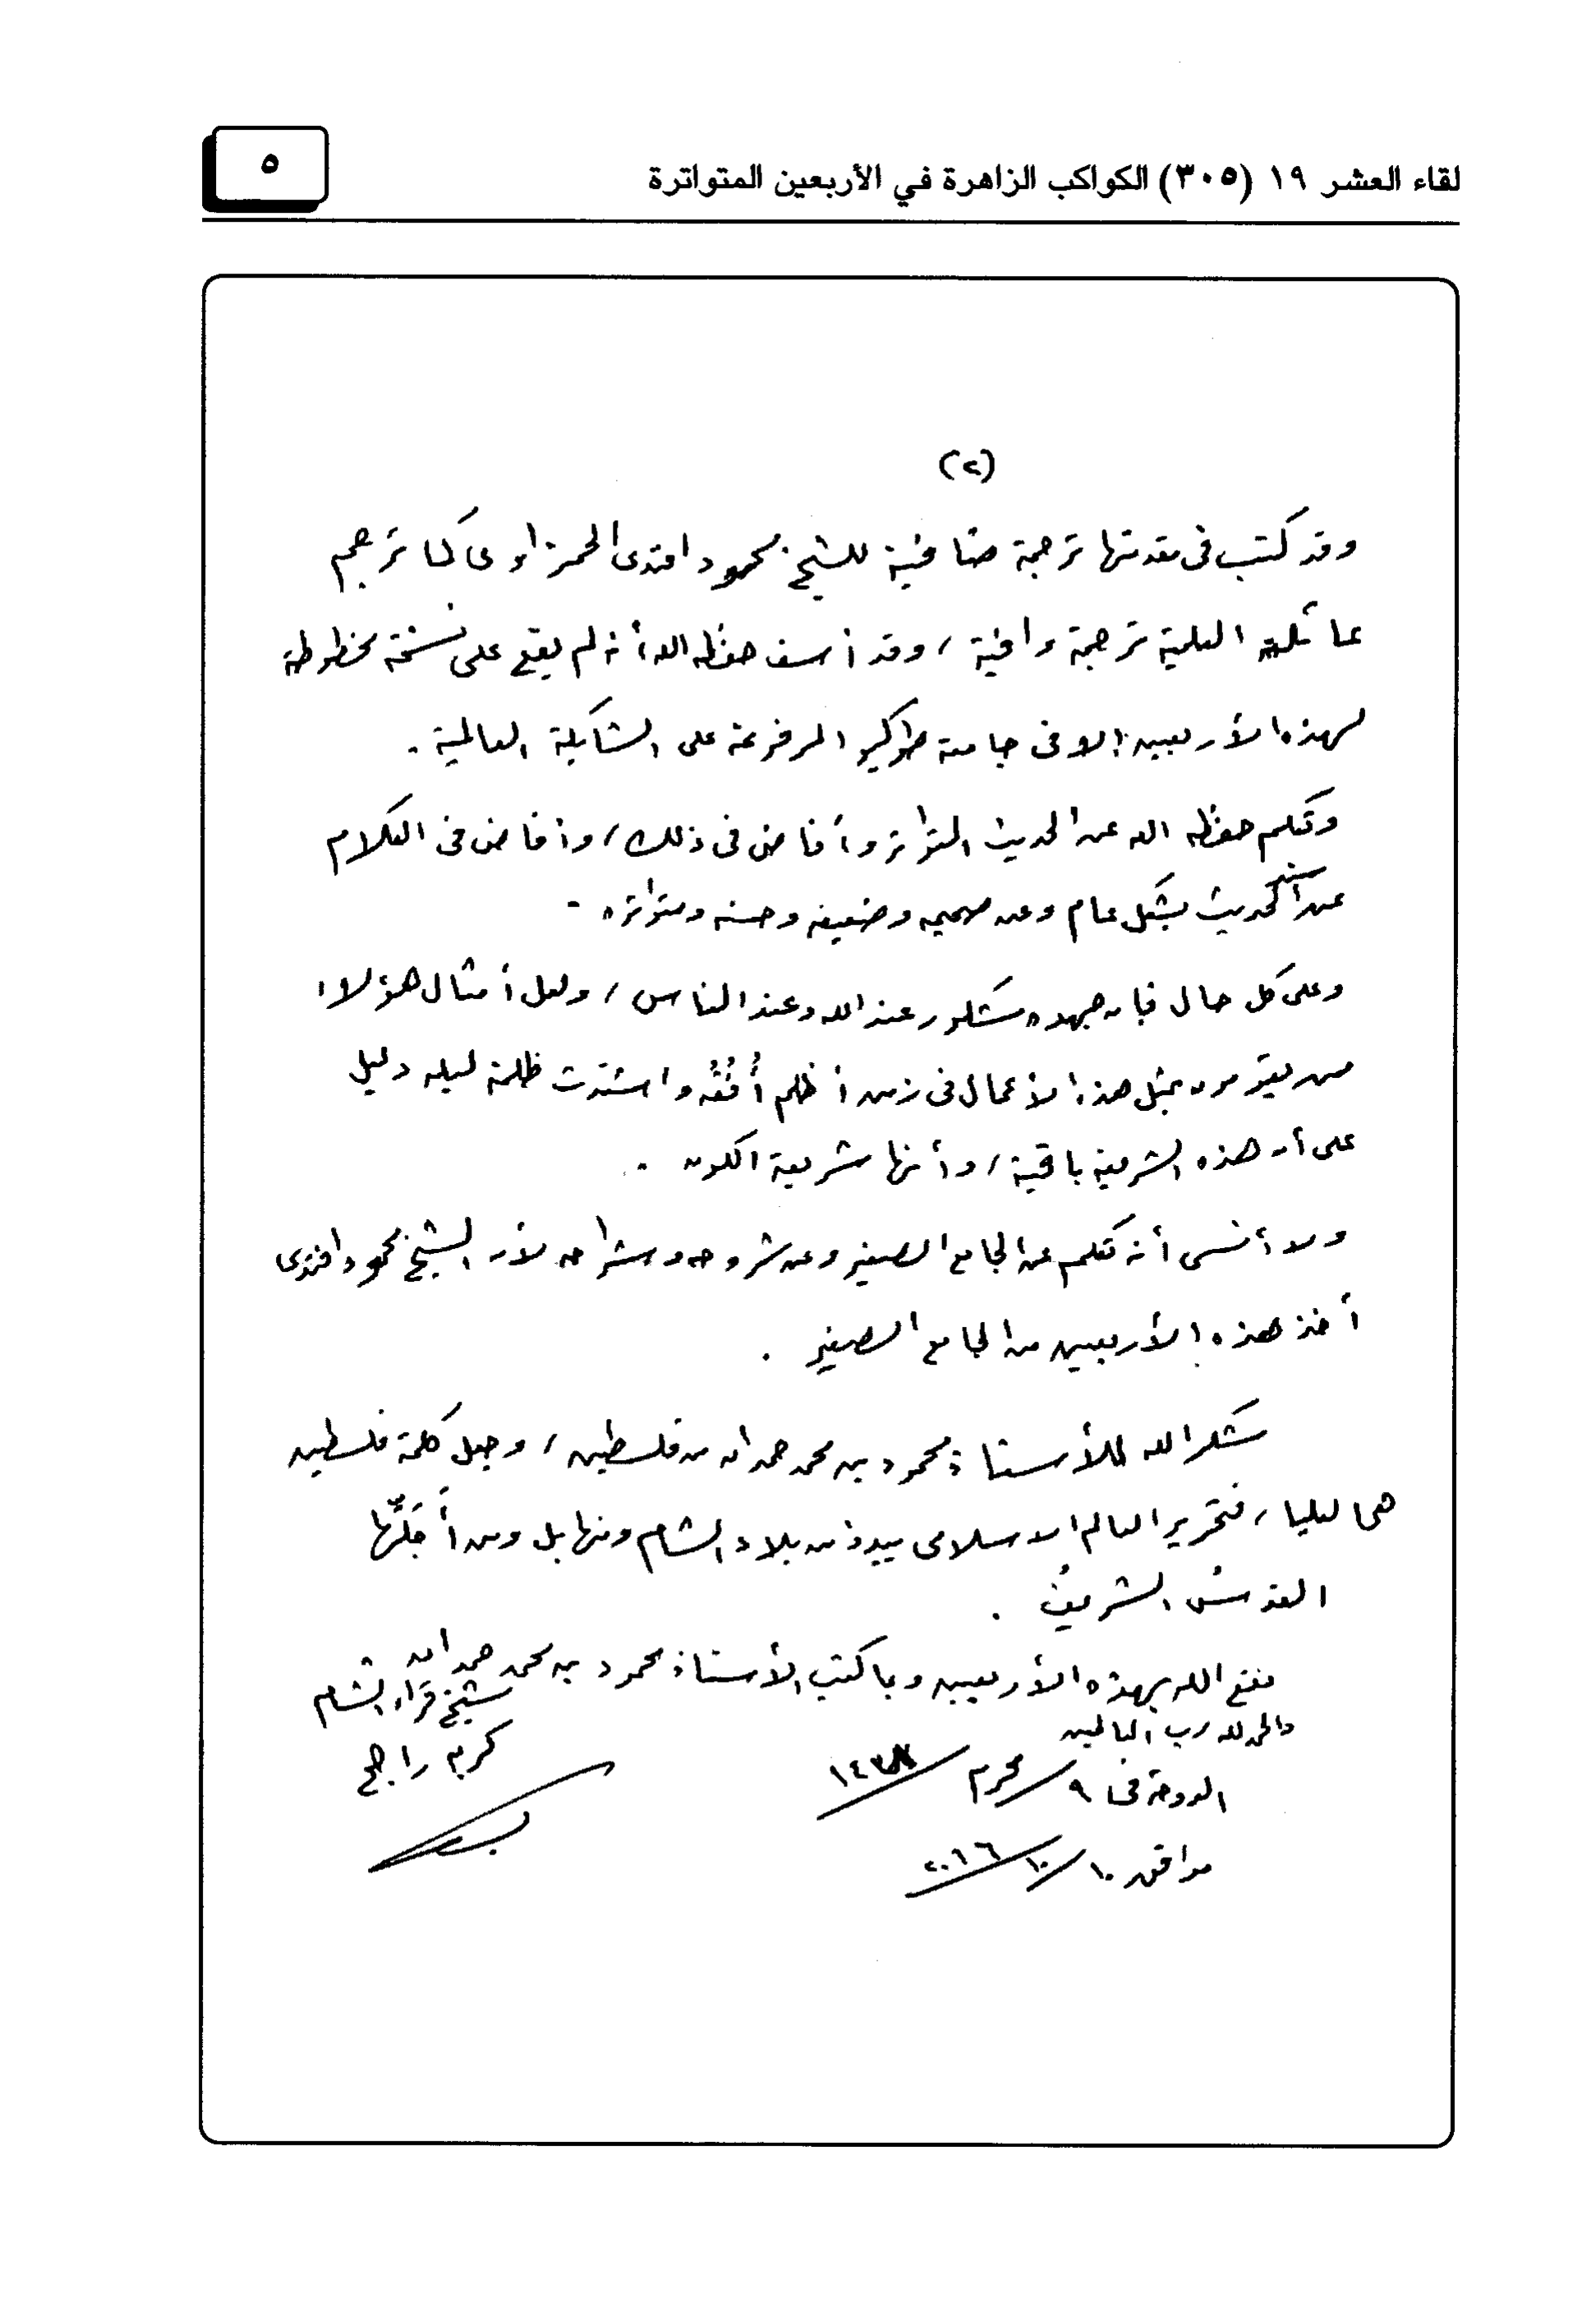 لقاء العشر ١٩ (٣٠٥) الكواكب الزاهرة في الأربعين المتواترة
٥
(٢)
وقد كتب فى مقدمتها ترجمة ضافية للشيخ محمود افندى الحمزاوى كما ترجم
عائلته العلمية ترجمة وافية، وقد أسف حفظه الله أنه لم يقع على نسخة مخطوطة
لهذه الأربعين إلا فى جامعة طوكيو المرفوعة على الشابكة العالمية.
وتكلم حفظه الله عن الحديث المتواتر وأفاض فى ذلك، وأفاض فى الكلام
عن الحديث بشكل عام وعن صحيحه وضعيفه وحسنه ومتواتره.
وعلى كل حال فإن جهده مشكور عند الله وعند الناس، ولعل أمثال هؤلاء
ممن يقومون بمثل هذه الأعمال فى زمن أظلم أُفُقُه واشتدت ظلمة ليله دليل
على أن هذه الشريعة باقية، وأنها شريعة الكون.
ولا أنسى أنه تكلم عن الجامع الصغير وعن شروحه وشراحه لأن الشيخ محمود افندى
أخذ هذه الأربعين من الجامع الصغير.
شكر الله للأستاذ محمود بن محمد حمدان من فلسطين، وجعل كلمة فلسطين
هى العليا، فتحرير العالم الاسلامى يبدأ من بلاد الشام ومنها بل ومن أَجَلِّها
القدسُ الشريفُ.
نفع الله بهذه الأربعين وبما كتب الأستاذ محمود بن محمد حمدان
والحمد لله رب العالمين
شيخ قراء الشام
كريم راجح
الدوحة فى ٩ محرم ١٤٣٨
موافق ١٠/١٠/٢٠١٦